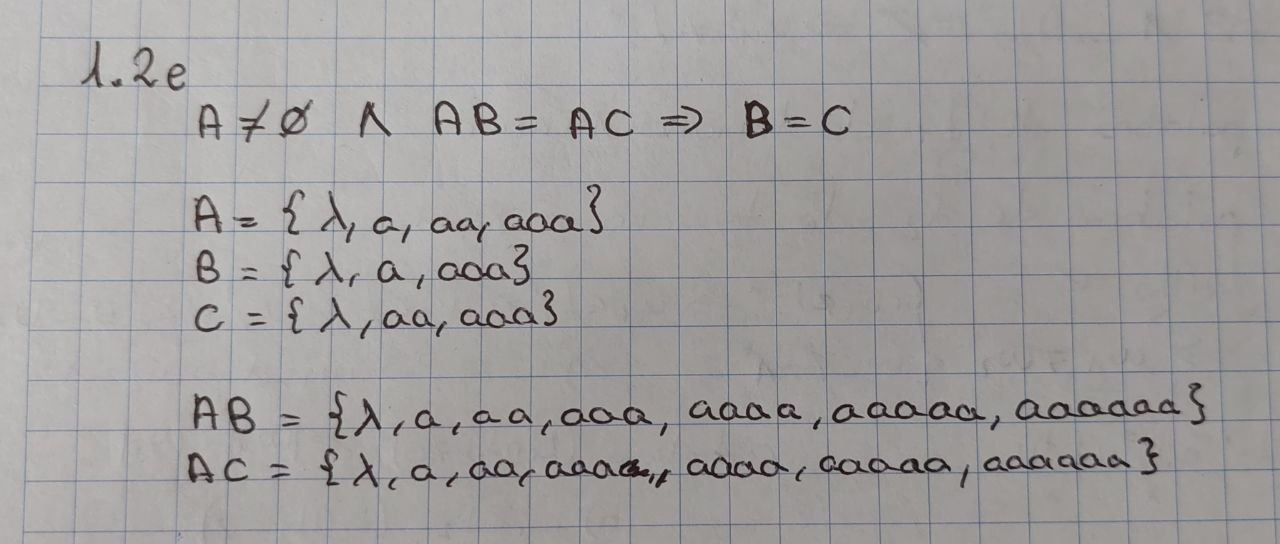 1.2e
A ≠ ∅ ∧ AB = AC ⇒ B = C
A = { λ, a, aa, aaa}
B = { λ, a, aaa}
C = { λ, aa, aaa}
AB = {λ, a, aa, aaa, aaaa, aaaaa, aaaaaa}
AC = {λ, a, aa, aaa, aaaa, aaaaa, aaaaaa}